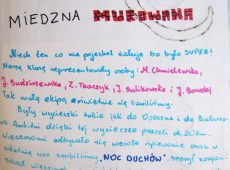 MIEDZNA MUROWANA
Niech ten co nie pojechał żałuje bo było SUPER!
Naszą klasę reprezentowały osoby: M. Chmielewska,
J. Budziszewska, Z. Tkaczyk, J. Sulikowska i J. Barucki
Tak małą ekipą świetnie się bawiliśmy.
Były wycieczki takie jak do Opoczna i do
Ambitni dzięki tej wycieczce przeszli ok. 20 km.
wieczorami odbywało się wesołe śpiewanie oraz w
ostatnią noc zrobiliśmy "NOC DUCHÓW"